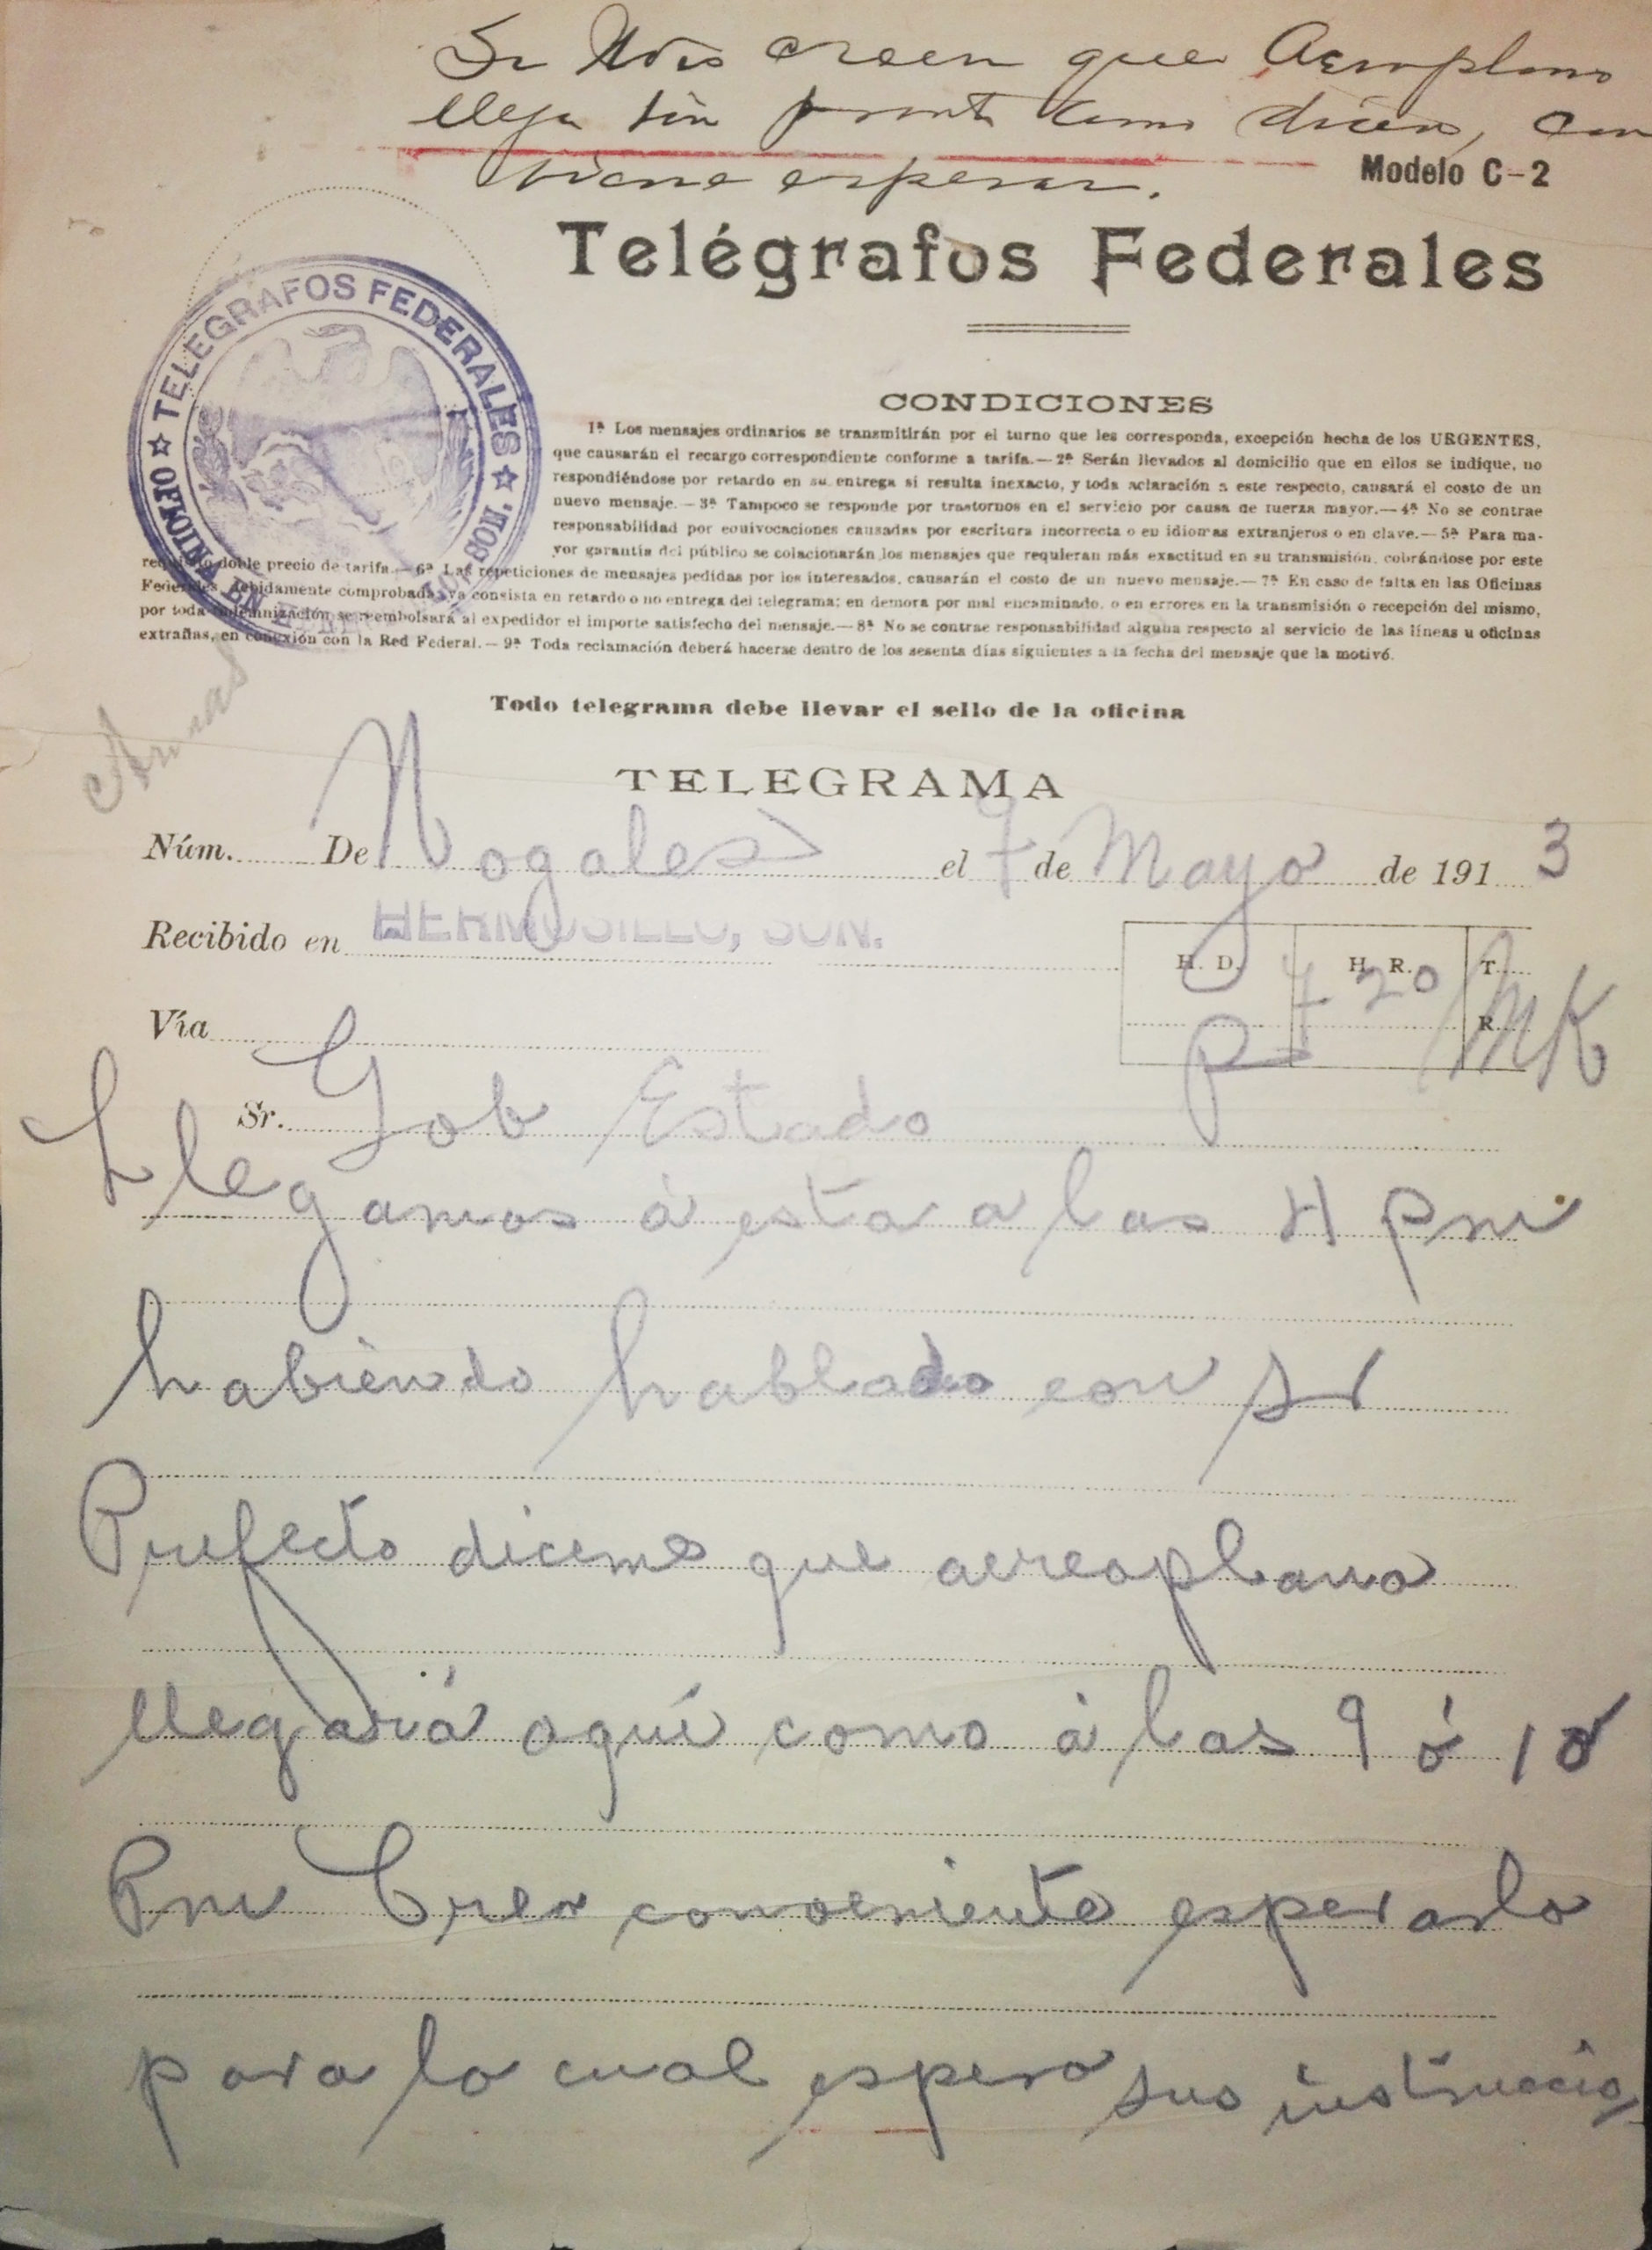 Si Uds creen que Aeroplano
llega tan pronto como dicen, con
viene esperar.
Modelo C-2
Telégrafos Federales
TELEGRAFOS FEDERALES
CONDICIONES
1ª Los mensajes ordinarios se transmitirán por el turno que les corresponda, excepción hecha de los URGENTES,
que causarán el recargo correspondiente conforme a tarifa.—2ª Serán llevados al domicilio que en ellos se indique, no
respondiéndose por retardo en su entrega si resulta inexacto, y toda aclaración a este respecto, causará el costo de un
nuevo mensaje.—3ª Tampoco se responde por trastornos en el servicio por causa de fuerza mayor.—4ª No se contrae
responsabilidad por equivocaciones causadas por escritura incorrecta o en idiomas extranjeros o en clave.—5ª Para ma-
yor garantía del público se colacionarán los mensajes que requieran más exactitud en su transmisión, cobrándose por este
requisito doble precio de tarifa.—6ª Las repeticiones de mensajes pedidas por los interesados, causarán el costo de un nuevo mensaje.—7ª En caso de falta en las Oficinas
Federales, debidamente comprobada, ya consista en retardo o no entrega del telegrama; en demora por mal encaminado, o en errores en la transmisión o recepción del mismo,
por toda indemnización se reembolsará al expedidor el importe satisfecho del mensaje.—8ª No se contrae responsabilidad alguna respecto al servicio de las líneas u oficinas
extrañas, en conexión con la Red Federal.—9ª Toda reclamación deberá hacerse dentro de los sesenta días siguientes a la fecha del mensaje que la motivó.
Todo telegrama debe llevar el sello de la oficina
Armas
TELEGRAMA
Núm. De Nogales el 7 de Mayo de 1913
Recibido en HERMOSILLO, SON.
H. D. H. R. T.
7 20 MK
Vía R.
P
Sr. Gob Estado
Llegamos á esta a las 4 pm
habiendo hablado con Sr
Prefecto diceme que aereoplano
llegará aquí como á las 9 ó 10
Pm Creo conveniente esperarlo
para lo cual espero sus instruccio